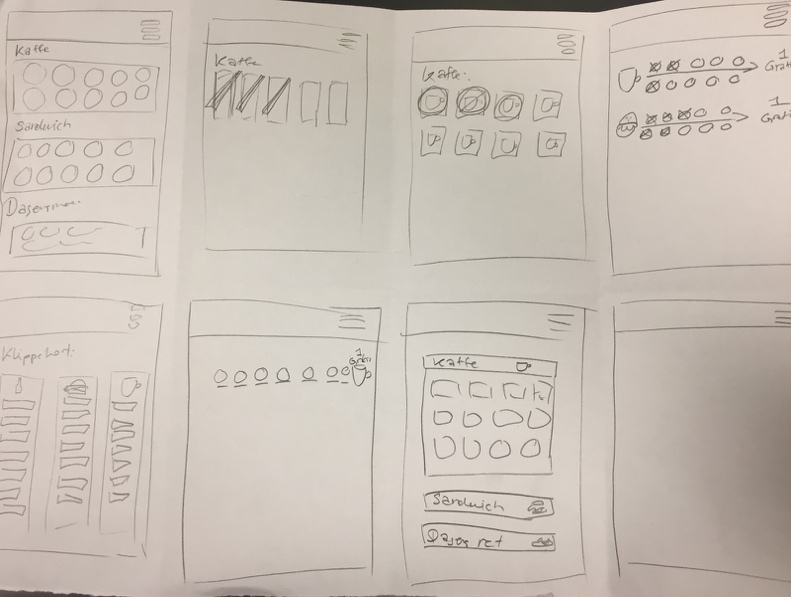 Kaffe
Sandwich
Kaffe
Kaffe:
1
Gratis
1
Gratis
Klippekort:
1
Gratis
Kaffe
Sandwich
Dagens ret